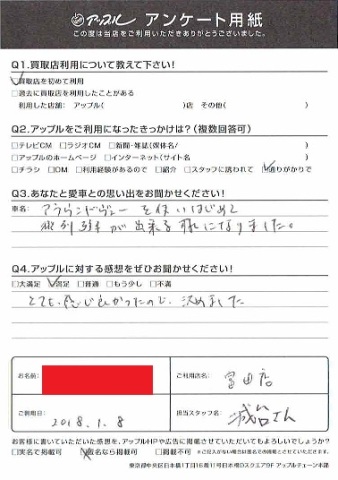 アップル アンケート用紙
この度は当店をご利用いただきありがとうございました。
Q1.買取店利用について教えて下さい!
☑買取店を初めて利用
□過去に買取店を利用したことがある
利用した店舗: アップル( )店 その他( )
Q2.アップルをご利用になったきっかけは?(複数回答可)
□テレビCM □ラジオCM □新聞・雑誌(媒体名/ )
□アップルのホームページ □インターネット(サイト名 )
□チラシ □DM □利用経験があるので □紹介 □スタッフに誘われて ☑通りがかりで
Q3.あなたと愛車との思い出をお聞かせください!
車名: アラウンドヴューを使いはじめて
縦列駐車が出来る様になりました。
Q4.アップルに対する感想をぜひお聞かせください!
□大満足 ☑満足 □普通 □もう少し □不満
とても感じ良かったので、決めました
お名前:
ご利用店名:
富田店
ご利用日:
2018.1.8
担当スタッフ名:
さん
お客様に書いていただいた感想を、アップルHPや広告に掲載させていただいてもよろしいでしょうか?
□実名で掲載可 ☑匿名なら掲載可 ※ご記入がない場合は匿名での掲載とさせていただきます。